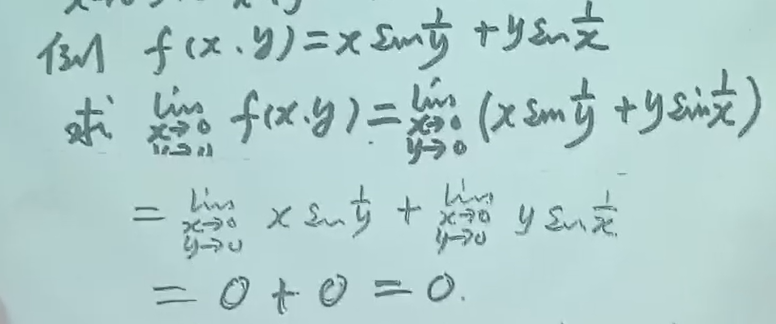 例 f(x,y)=x sin 1/y + y sin 1/x
求 lim x→0 y→0 f(x,y) = lim x→0 y→0 (x sin 1/y + y sin 1/x)
= lim x→0 y→0 x sin 1/y + lim x→0 y→0 y sin 1/x
= 0 + 0 = 0.